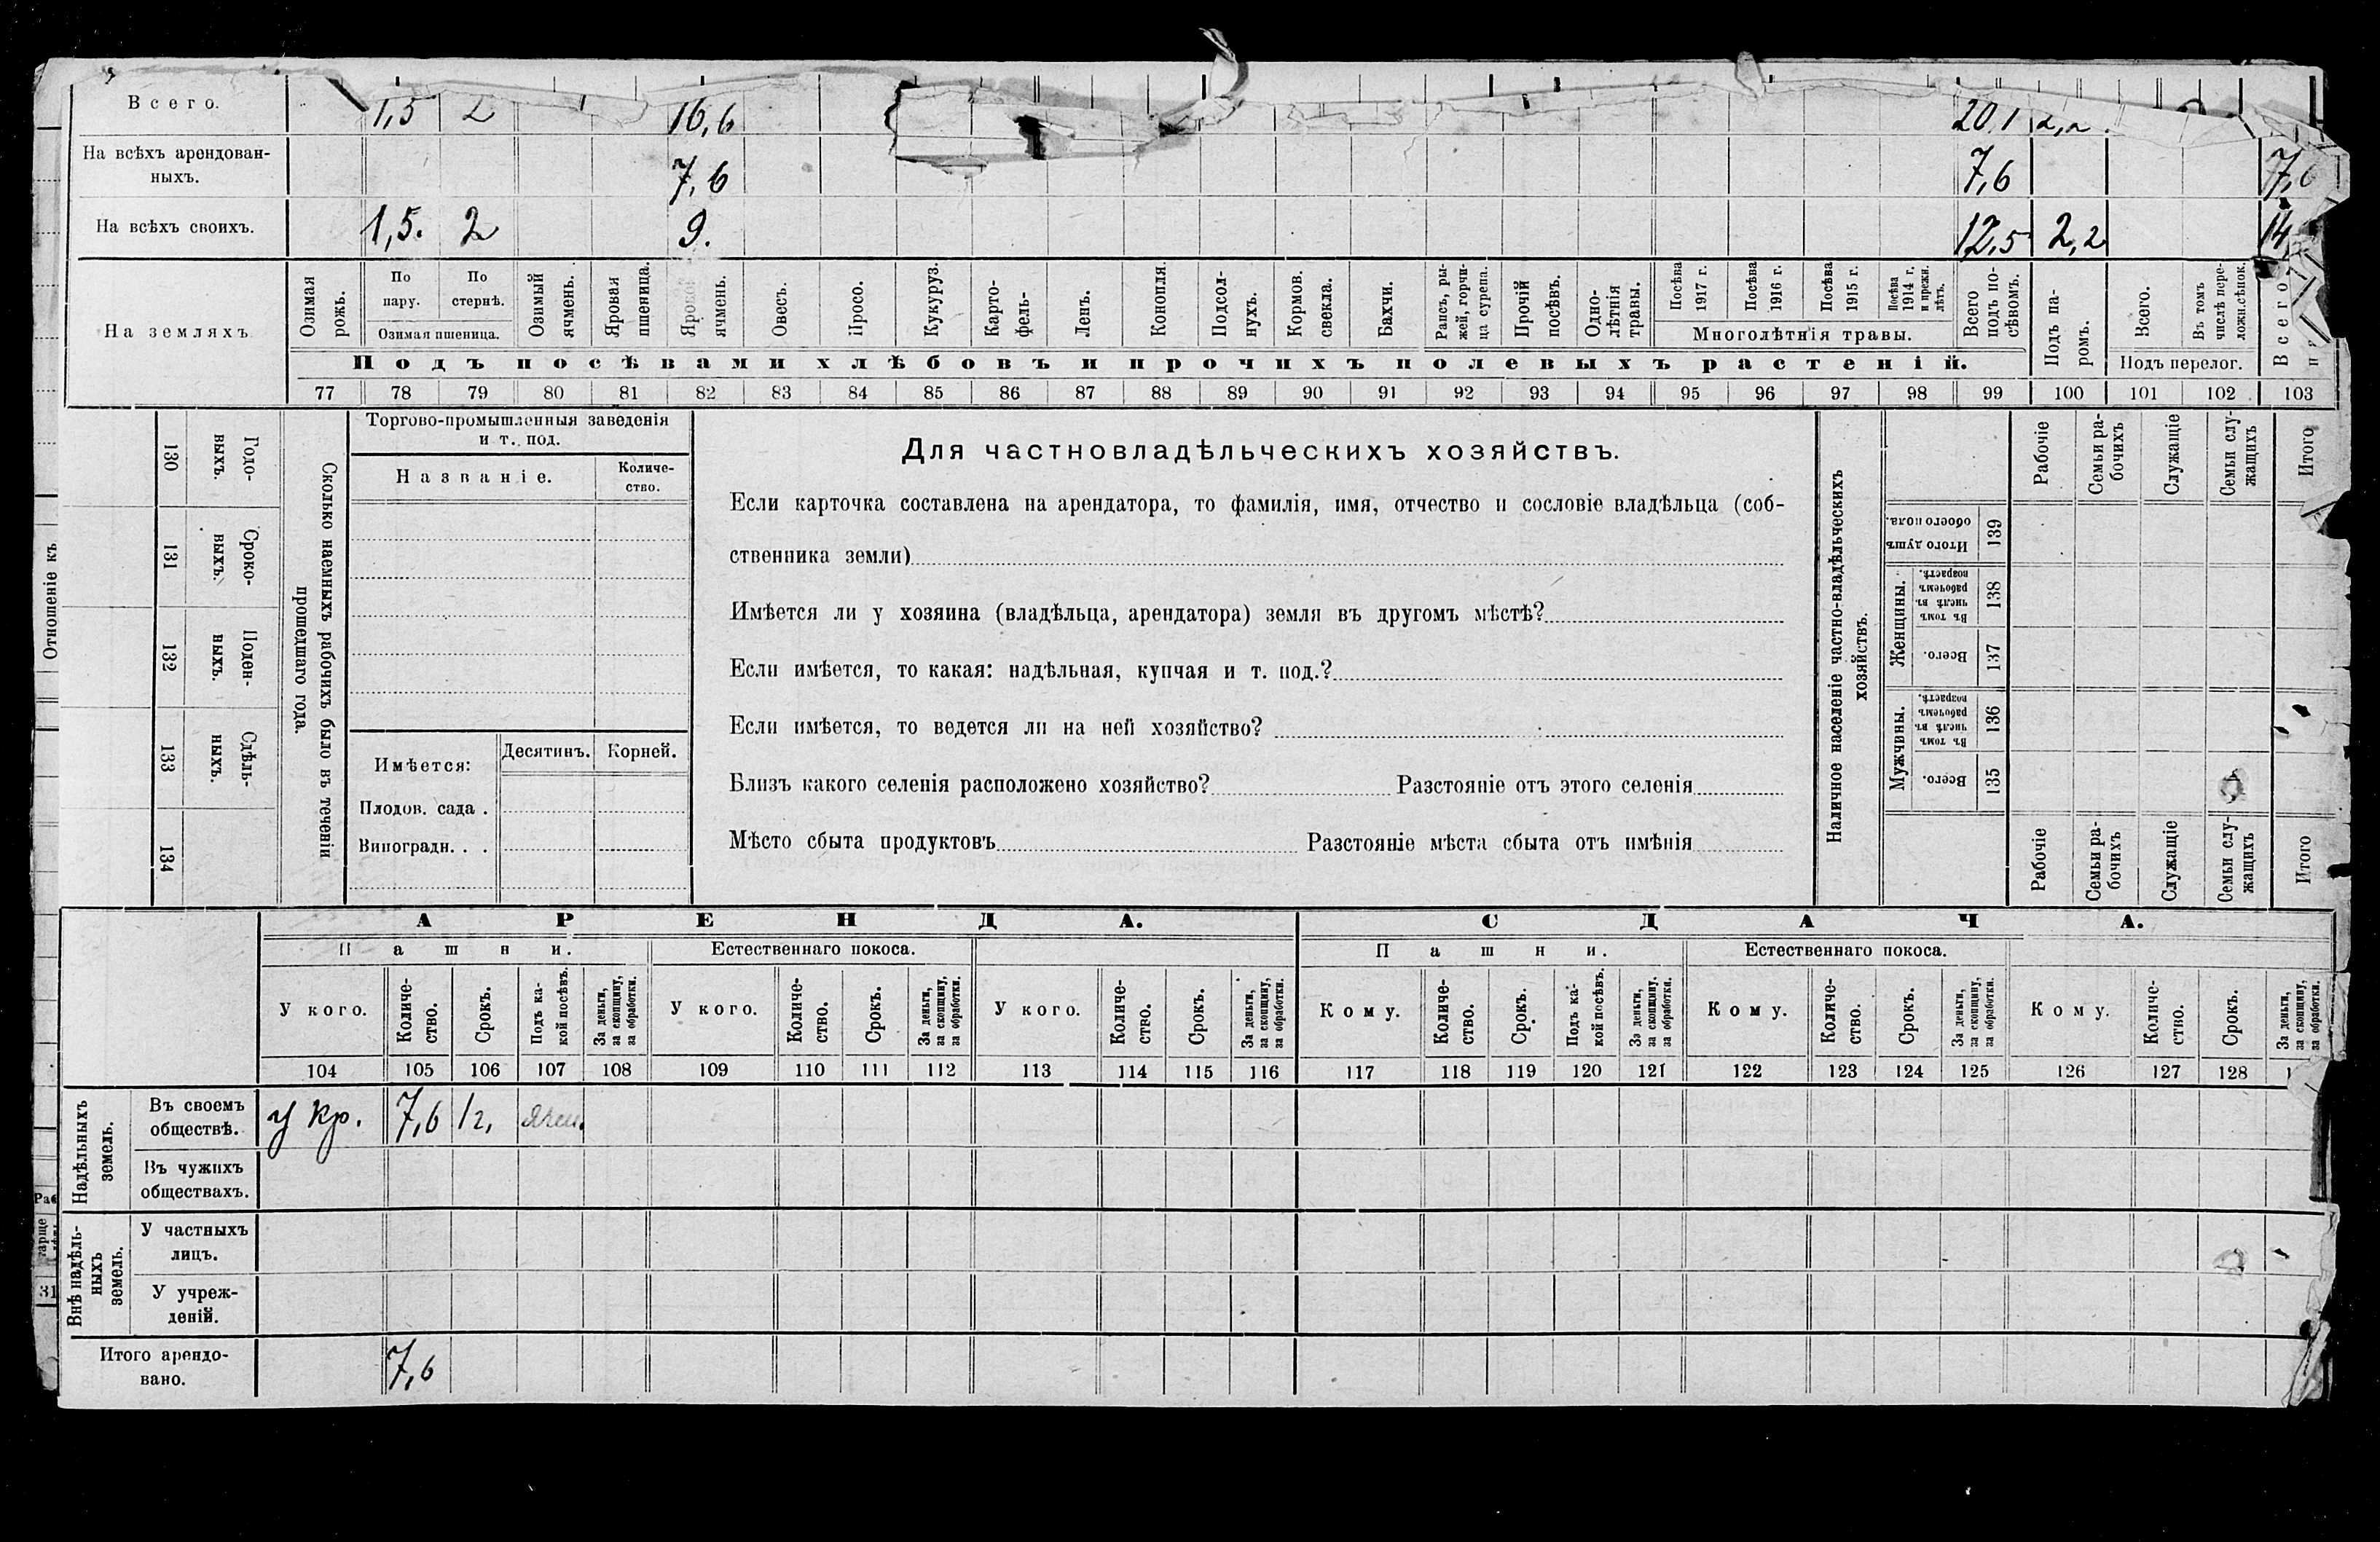 Всего. 1,5 2 16,6 20,1 2,2
На всѣхъ арендован-
ныхъ. 7,6 7,6 7,6
На всѣхъ своихъ. 1,5. 2 9. 12,5 2,2 14,
На земляхъ
Озимая рожь.
По пару.
По стернѣ.
Озимая пшеница.
Озимый ячмень.
Яровая пшеница.
Яровой ячмень.
Овесъ.
Просо.
Кукуруз.
Карто-
фель-
Ленъ.
Конопля.
Подсол-
нухъ.
Кормов.
свекла.
Бахчи.
Рапсъ, ры-
жей, горчи-
ца сурепа.
Прочій
посѣвъ.
Одно-
лѣтнія
травы.
Посѣва
1917 г.
Посѣва
1916 г.
Посѣва
1915 г.
Посѣва
1914 г.
и прежн.
лѣтъ.
Многолѣтнія травы.
Всего
подъ по-
сѣвомъ.
Подъ па-
ромъ.
Всего.
Въ томъ
числѣ пере-
ложн.сѣнок.
Подъ перелог.
Всего
Подъ посѣвами хлѣбовъ и прочихъ полевыхъ растеній.
77 78 79 80 81 82 83 84 85 86 87 88 89 90 91 92 93 94 95 96 97 98 99 100 101 102 103
Отношеніе къ
130 Годо-
выхъ.
131 Сроко-
выхъ.
132 Поден-
ныхъ.
133 Сдѣль-
ныхъ.
134
Сколько наемныхъ рабочихъ было въ теченіи
прошедшаго года.
Торгово-промышленныя заведенія
и т. под.
Названіе.
Количе-
ство.
Имѣется:
Десятинъ. Корней.
Плодов. сада .
Виноградн. . .
Для частновладѣльческихъ хозяйствъ.
Если карточка составлена на арендатора, то фамилія, имя, отчество и сословіе владѣльца (соб-
ственника земли)
Имѣется ли у хозяина (владѣльца, арендатора) земля въ другомъ мѣстѣ?
Если имѣется, то какая: надѣльная, купчая и т. под.?
Если имѣется, то ведется ли на ней хозяйство?
Близъ какого селенія расположено хозяйство? Разстояніе отъ этого селенія
Мѣсто сбыта продуктовъ Разстояніе мѣста сбыта отъ имѣнія
Наличное населеніе частно-владѣльческихъ
хозяйствъ.
Рабочіе
Семьи ра-
бочихъ
Служащіе
Семьи слу-
жащихъ
Итого
Итого душъ
обоего пола.
139
Женщины.
Въ томъ
числѣ въ
рабочемъ
возрастѣ.
138
Всего.
137
Мужчины.
Въ томъ
числѣ въ
рабочемъ
возрастѣ.
136
Всего.
135
Рабочіе
Семьи ра-
бочихъ
Служащіе
Семьи слу-
жащихъ
Итого
АРЕНДА. СДАЧА.
Пашни. Естественнаго покоса. Пашни. Естественнаго покоса.
У кого.
Количе-
ство.
Срокъ.
Подъ ка-
кой посѣвъ.
За деньги,
за скопщину,
за обработки.
У кого.
Количе-
ство.
Срокъ.
За деньги,
за скопщину,
за обработки.
У кого.
Количе-
ство.
Срокъ.
За деньги,
за скопщину,
за обработки.
Кому.
Количе-
ство.
Срокъ.
Подъ ка-
кой посѣвъ.
За деньги,
за скопщину,
за обработки.
Кому.
Количе-
ство.
Срокъ.
За деньги,
за скопщину,
за обработки.
Кому.
Количе-
ство.
Срокъ.
За деньги,
за скопщину,
за обработки.
104 105 106 107 108 109 110 111 112 113 114 115 116 117 118 119 120 121 122 123 124 125 126 127 128
Надѣльныхъ
земель.
Въ своемъ
обществѣ. у кр. 7,6 1г. ячм.
Въ чужихъ
обществахъ.
Внѣ надѣль-
ныхъ
земель.
У частныхъ
лицъ.
У учреж-
деній.
Итого арендо-
вано. 7,6
31